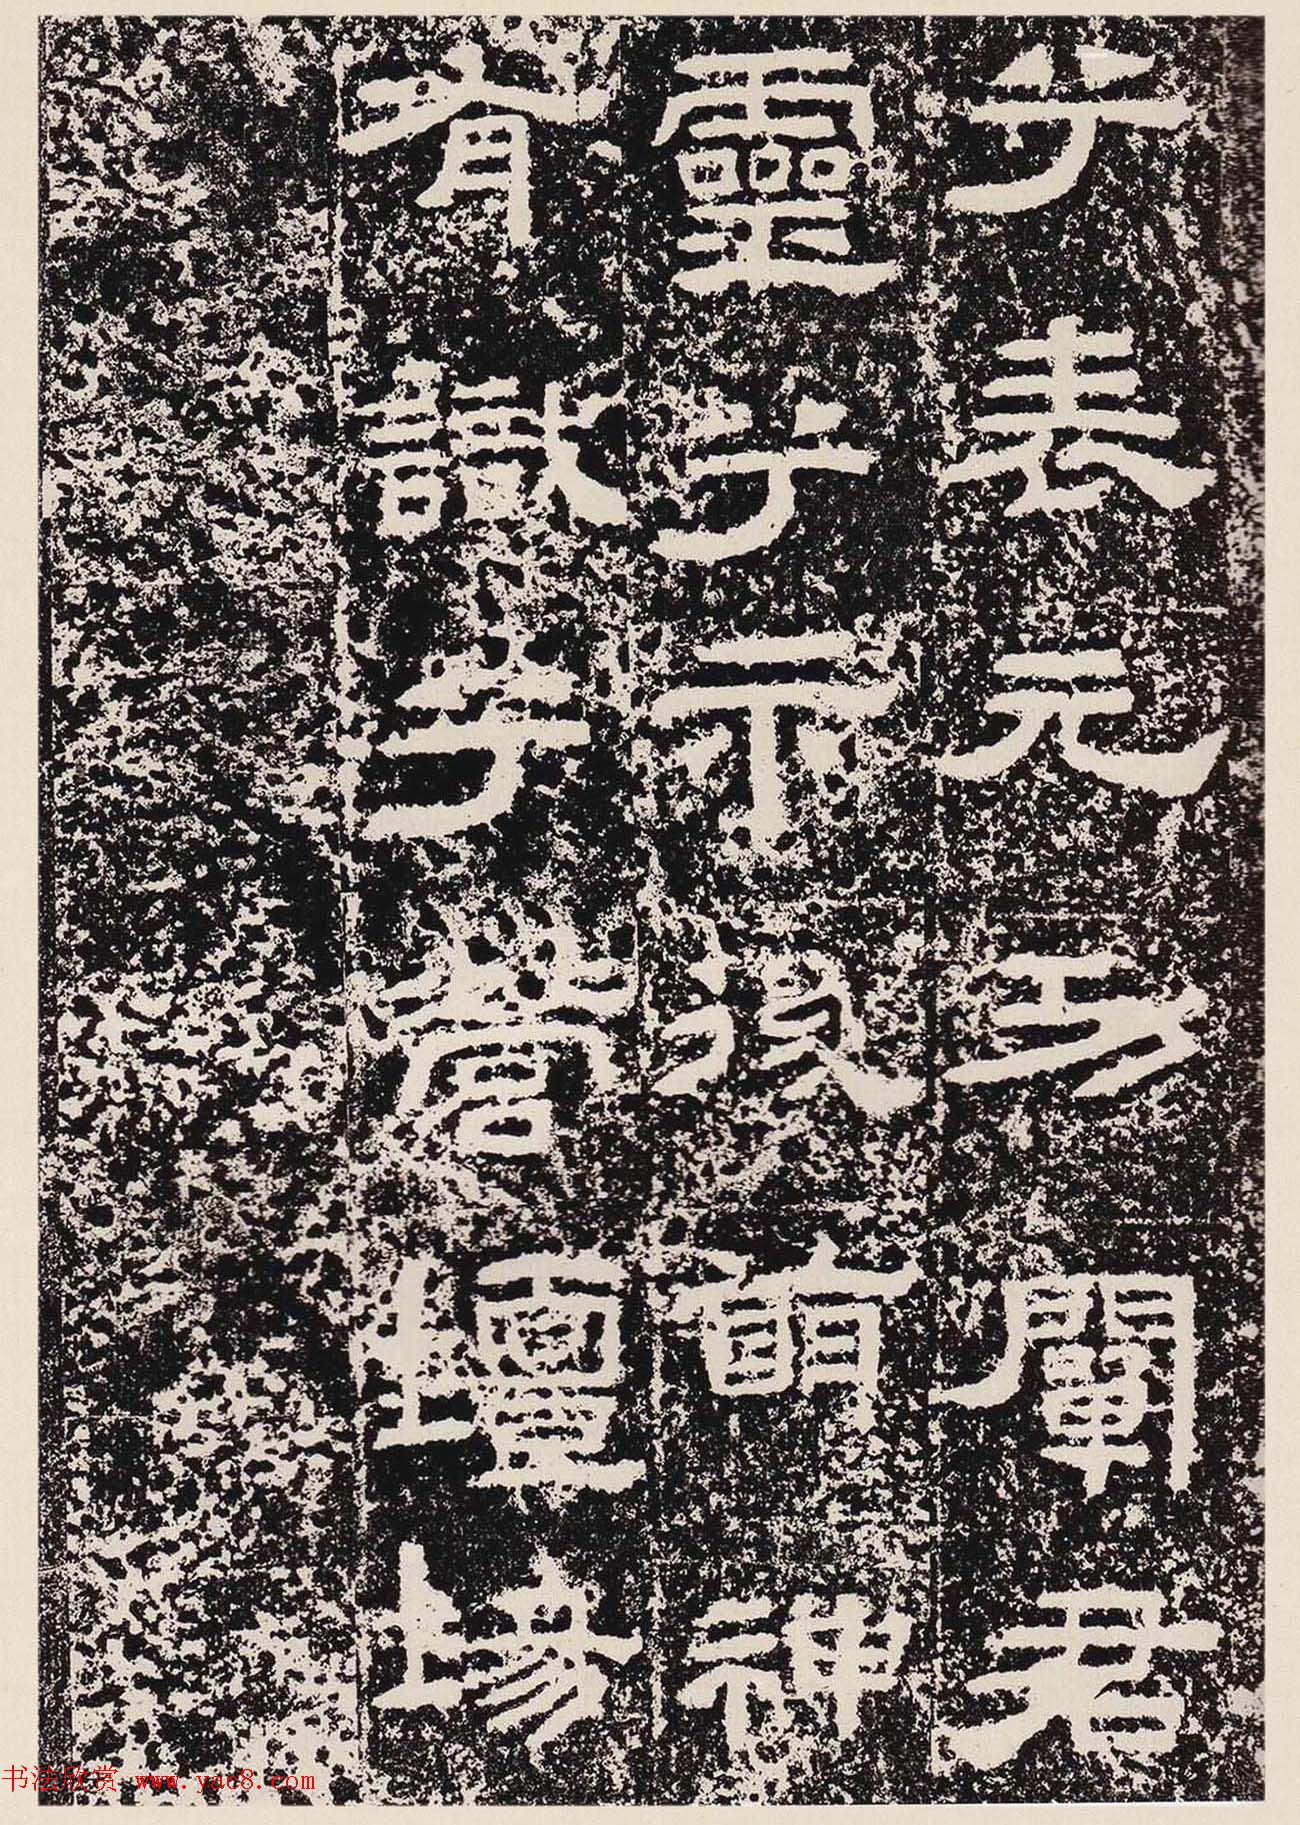 兮表元功闡君
靈兮示後萌神
有識兮營壇場
书法欣赏 www.yac8.com